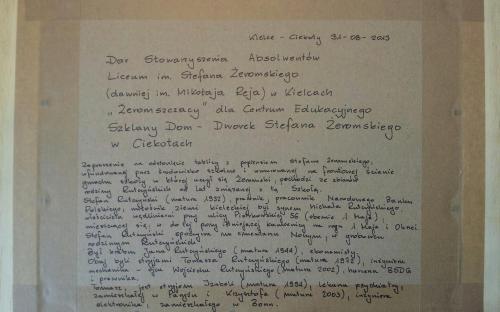 Kielce - Ciekoty 31-08-2013
Dar Stowarzyszenia Absolwentów
Liceum im. Stefana Żeromskiego
(dawniej im. Mikołaja Reja) w Kielcach
„Żeromszczacy" dla Centrum Edukacyjnego
Szklany Dom - Dworek Stefana Żeromskiego
w Ciekotach
Zaproszenie na odsłonięcie tablicy z popiersiem Stefana Żeromskiego,
ufundowanej przez środowisko szkolne i wmurowanej na frontowej ścianie
gmachu szkoły w której uczył się Żeromski, pochodzi ze zbiorów
rodziny Rutczyńskich od lat związanej z tą Szkołą.
Stefan Rutczyński (matura 1932), prawnik, pracownik Narodowego Banku
Polskiego, miłośnik ziemi kieleckiej był synem Michała Rutczyńskiego,
właściciela wędliniarni przy ulicy Piotrkowskiej 56 (obecnie 1 Maja)
mieszczącej się w do tej pory istniejącej kamienicy na rogu 1 Maja i Okrzei
Stefan Rutczyński spoczywa na cmentarzu Nowym, w grobowcu
rodzinnym Rutczyńskich
Był bratem Jana Rutczyńskiego (matura 1944), ekonomisty
Obaj byli stryjami Tomasza Rutczyńskiego (matura 197), inżyniera
mechanika - ojca Wojciecha Rutczyńskiego (matura 2002),
i prawnika.
Tomasz, jest stryjem Izabeli (matura 1994), lekarza psychiatry,
zamieszkałej w Paryżu i Krzysztofa (matura 2003), inżyniera
elektronika, zamieszkałego w Bonn.